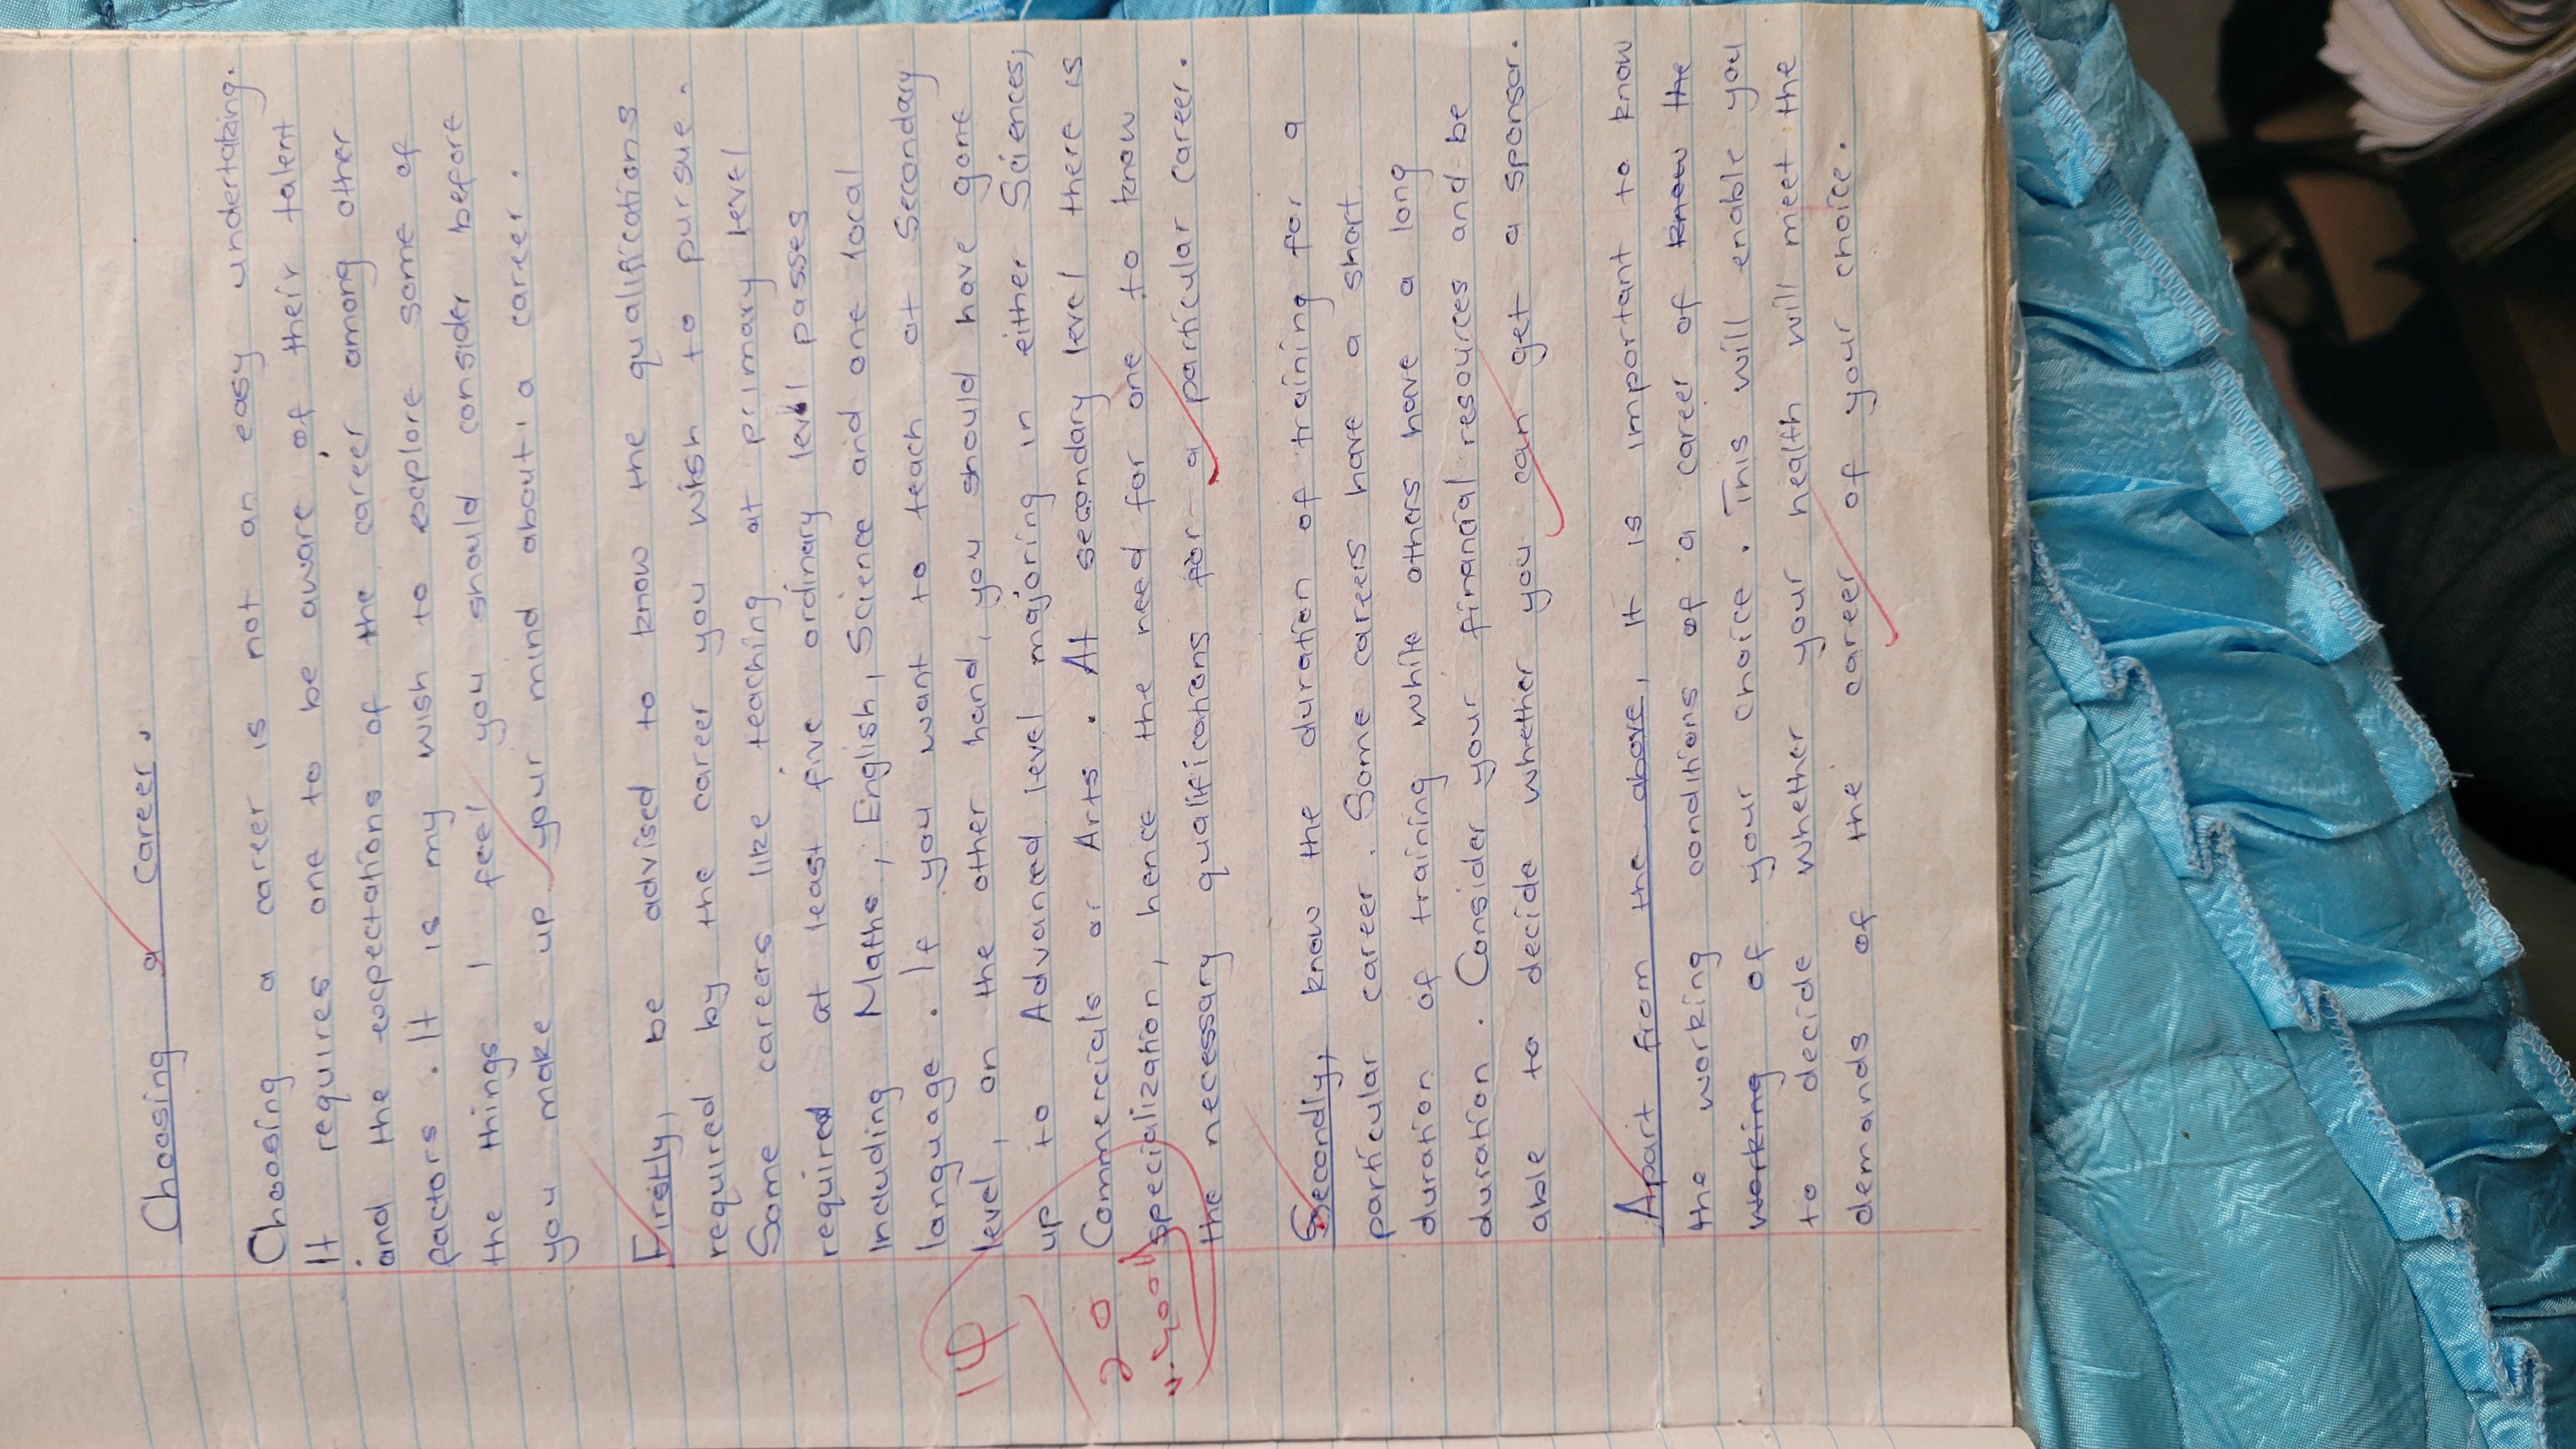 Choosing a career.
Choosing a career is not an easy undertaking.
It requires one to be aware of their talent
and the expectations of the career among other
factors. It is my wish to explore some of
the things I feel you should consider before
you make up your mind about a career.
Firstly, be advised to know the qualifications
required by the career you wish to pursue.
Some careers like teaching at primary level
required at least five ordinary level passes
including Maths, English, Science and one local
language. If you want to teach at Secondary
level, on the other hand, you should have gone
up to Advanced level majoring in either Sciences,
Commercials or Arts. At secondary level there is
specialization, hence the need for one to know
the necessary qualifications for a particular career.
14
20
"Good"
Secondly, know the duration of training for a
particular career. Some careers have a short
duration of training while others have a long
duration. Consider your financial resources and be
able to decide whether you can get a sponsor.
Apart from the above, it is important to know
the working conditions of a career of know the
working of your choice. This will enable you
to decide whether your health will meet the
demands of the career of your choice.